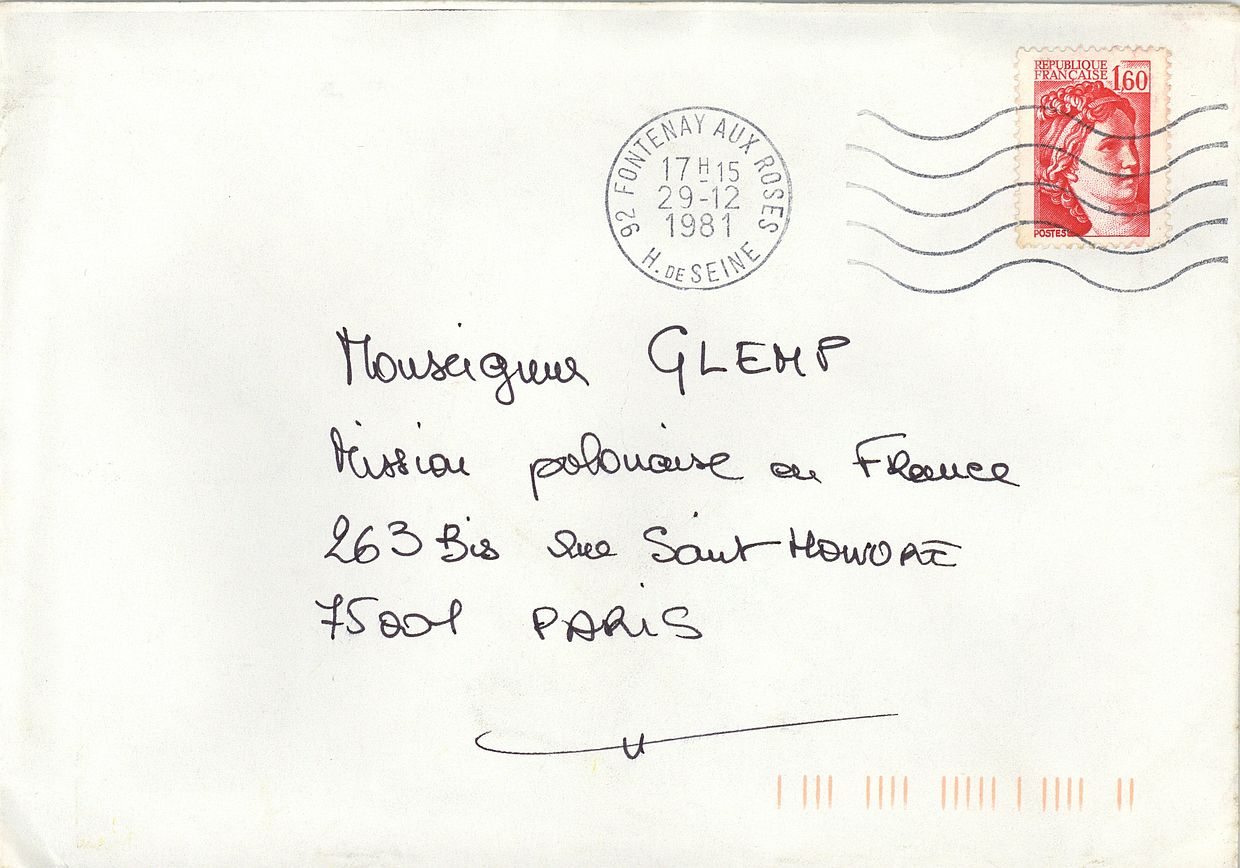 REPUBLIQUE
FRANÇAISE 1,60
POSTES
92 FONTENAY AUX ROSES
17 H 15
29-12
1981
H. DE SEINE
Monseigneur GLEMP
Mission polonaise en France
263 Bis rue Saint HONORÉ
75001 PARIS